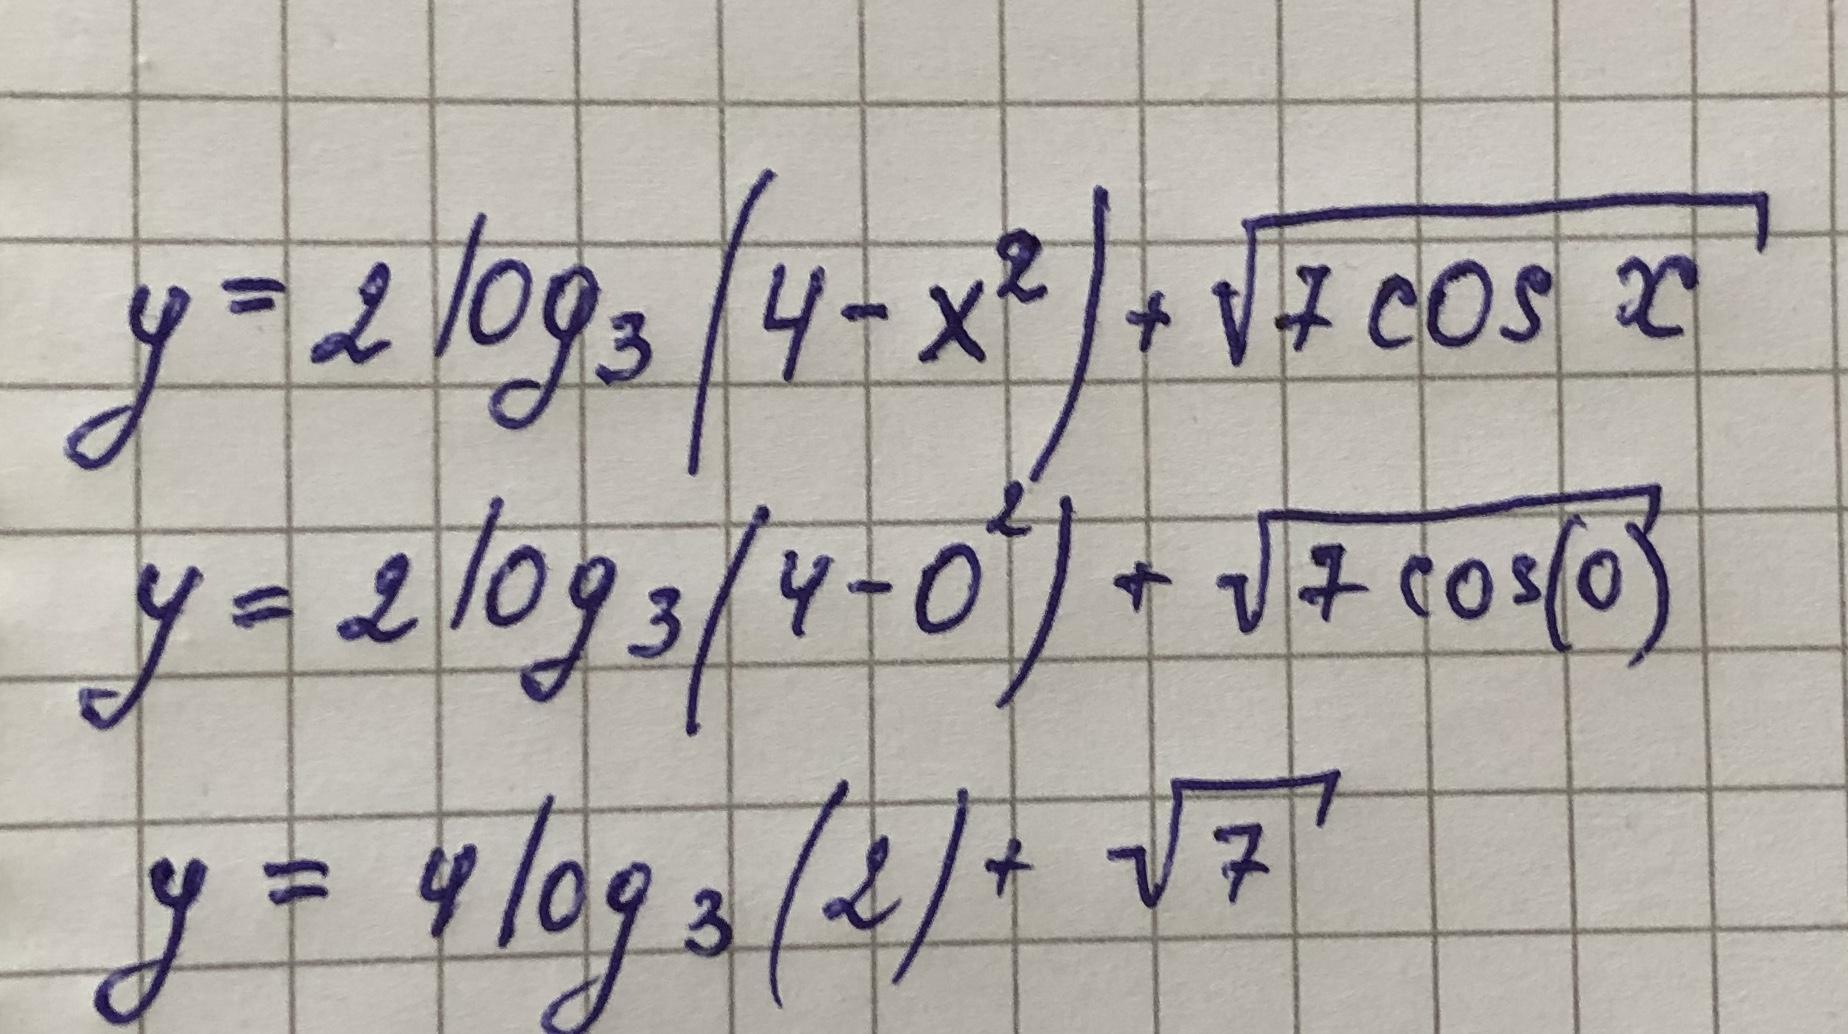 y = 2 log₃(4 - x²) + √(7 cos x)
y = 2 log₃(4 - 0²) + √(7 cos(0))
y = 4 log₃(2) + √7